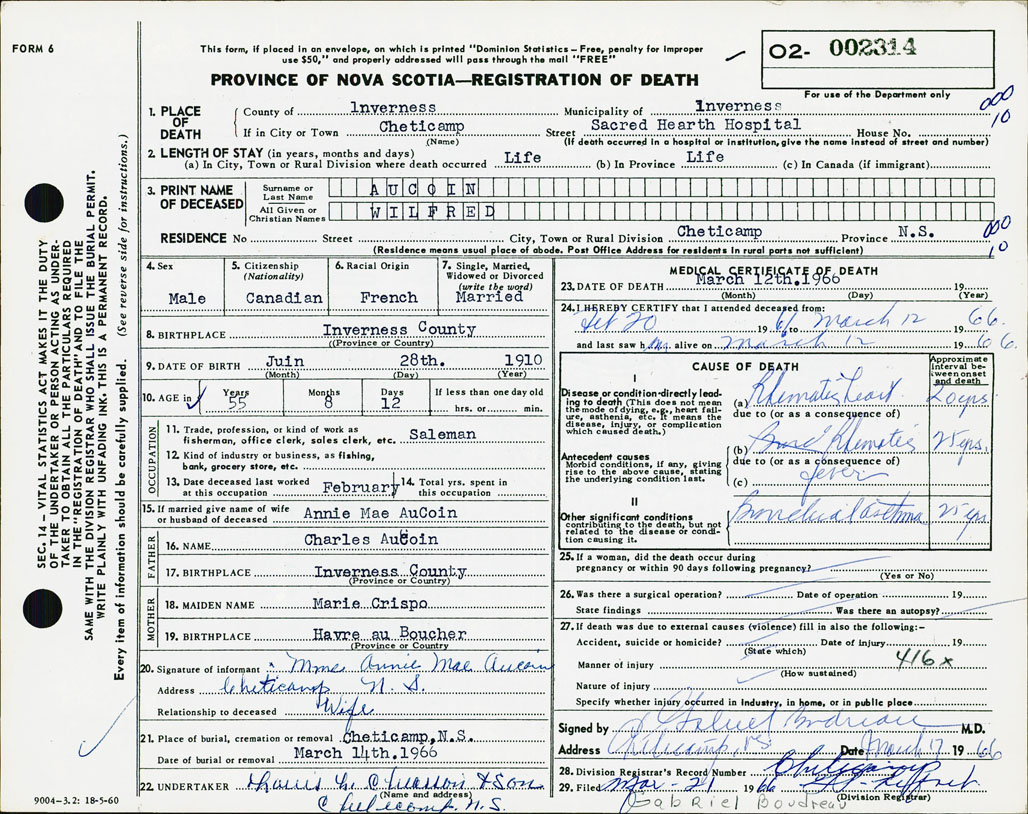 FORM 6
This form, if placed in an envelope, on which is printed "Dominion Statistics – Free, penalty for improper
use $50," and properly addressed will pass through the mail "FREE"
O2- 002314
For use of the Department only
PROVINCE OF NOVA SCOTIA—REGISTRATION OF DEATH
000
10
1. PLACE OF DEATH County of Inverness Municipality of Inverness
If in City or Town Cheticamp Street Sacred Hearth Hospital House No.
(Name) (If death occurred in a hospital or institution, give the name instead of street and number)
2. LENGTH OF STAY (in years, months and days)
(a) In City, Town or Rural Division where death occurred Life (b) In Province Life (c) In Canada (if immigrant)
3. PRINT NAME OF DECEASED Surname or Last Name AUCOIN
All Given or Christian Names WILFRED
000
10
RESIDENCE No Street City, Town or Rural Division Cheticamp Province N.S.
(Residence means usual place of abode. Post Office Address for residents in rural parts not sufficient)
4. Sex Male
5. Citizenship (Nationality) Canadian
6. Racial Origin French
7. Single, Married, Widowed or Divorced (write the word) Married
8. BIRTHPLACE Inverness County
(Province or Country)
9. DATE OF BIRTH Juin 28th. 1910
(Month) (Day) (Year)
10. AGE in Years 55 Months 8 Days 12 If less than one day old hrs. or min.
OCCUPATION
11. Trade, profession, or kind of work as
fisherman, office clerk, sales clerk, etc. Saleman
12. Kind of industry or business, as fishing,
bank, grocery store, etc.
13. Date deceased last worked at this occupation February 14. Total yrs. spent in this occupation
15. If married give name of wife
or husband of deceased Annie Mae AuCoin
FATHER
16. NAME Charles AuCoin
17. BIRTHPLACE Inverness County
(Province or Country)
MOTHER
18. MAIDEN NAME Marie Crispo
19. BIRTHPLACE Havre au Boucher
(Province or Country)
20. Signature of informant Mme Annie Mae Aucoin
Address Cheticamp N.S.
Relationship to deceased Wife
21. Place of burial, cremation or removal Cheticamp, N.S.
Date of burial or removal March 14th. 1966
22. UNDERTAKER Chiasson & Son
(Name and address)
Cheticamp N.S.
9004-3.2: 18-5-60
MEDICAL CERTIFICATE OF DEATH
23. DATE OF DEATH March 12th. 1966 19
(Month) (Day) (Year)
24. I HEREBY CERTIFY that I attended deceased from:
20 196 to March 12 1966
and last saw h alive on March 12 1966
CAUSE OF DEATH
Approximate interval between onset and death
I
Disease or condition directly leading to death (This does not mean the mode of dying, e.g., heart failure, asthenia, etc. It means the disease, injury, or complication which caused death.)
(a) Rhematic heart 20 yrs
due to (or as a consequence of)
Antecedent causes
Morbid conditions, if any, giving rise to the above cause, stating the underlying condition last.
(b) Rhematic 25 yrs.
due to (or as a consequence of)
(c) fever
II
Other significant conditions
contributing to the death, but not related to the disease or condition causing it.
Bronchial asthma 25 yrs
25. If a woman, did the death occur during
pregnancy or within 90 days following pregnancy?
(Yes or No)
26. Was there a surgical operation? Date of operation 19
State findings Was there an autopsy?
27. If death was due to external causes (violence) fill in also the following:–
Accident, suicide or homicide? Date of injury 19
(State which)
416x
Manner of injury
(How sustained)
Nature of injury
Specify whether injury occurred in industry, in home, or in public place
Signed by Gabriel Boudreau M.D.
Address Cheticamp, NS Date March 17 1966
28. Division Registrar's Record Number Cheticamp
29. Filed Mar - 21 1966
(Division Registrar)
Gabriel Boudreau
SEC. 14 – VITAL STATISTICS ACT MAKES IT THE DUTY
OF THE UNDERTAKER OR PERSON ACTING AS UNDER-
TAKER TO OBTAIN ALL THE PARTICULARS REQUIRED
IN THE "REGISTRATION OF DEATH" AND TO FILE THE
SAME WITH THE DIVISION REGISTRAR WHO SHALL ISSUE THE BURIAL PERMIT.
WRITE PLAINLY WITH UNFADING INK. THIS IS A PERMANENT RECORD.
Every item of information should be carefully supplied. (See reverse side for instructions.)